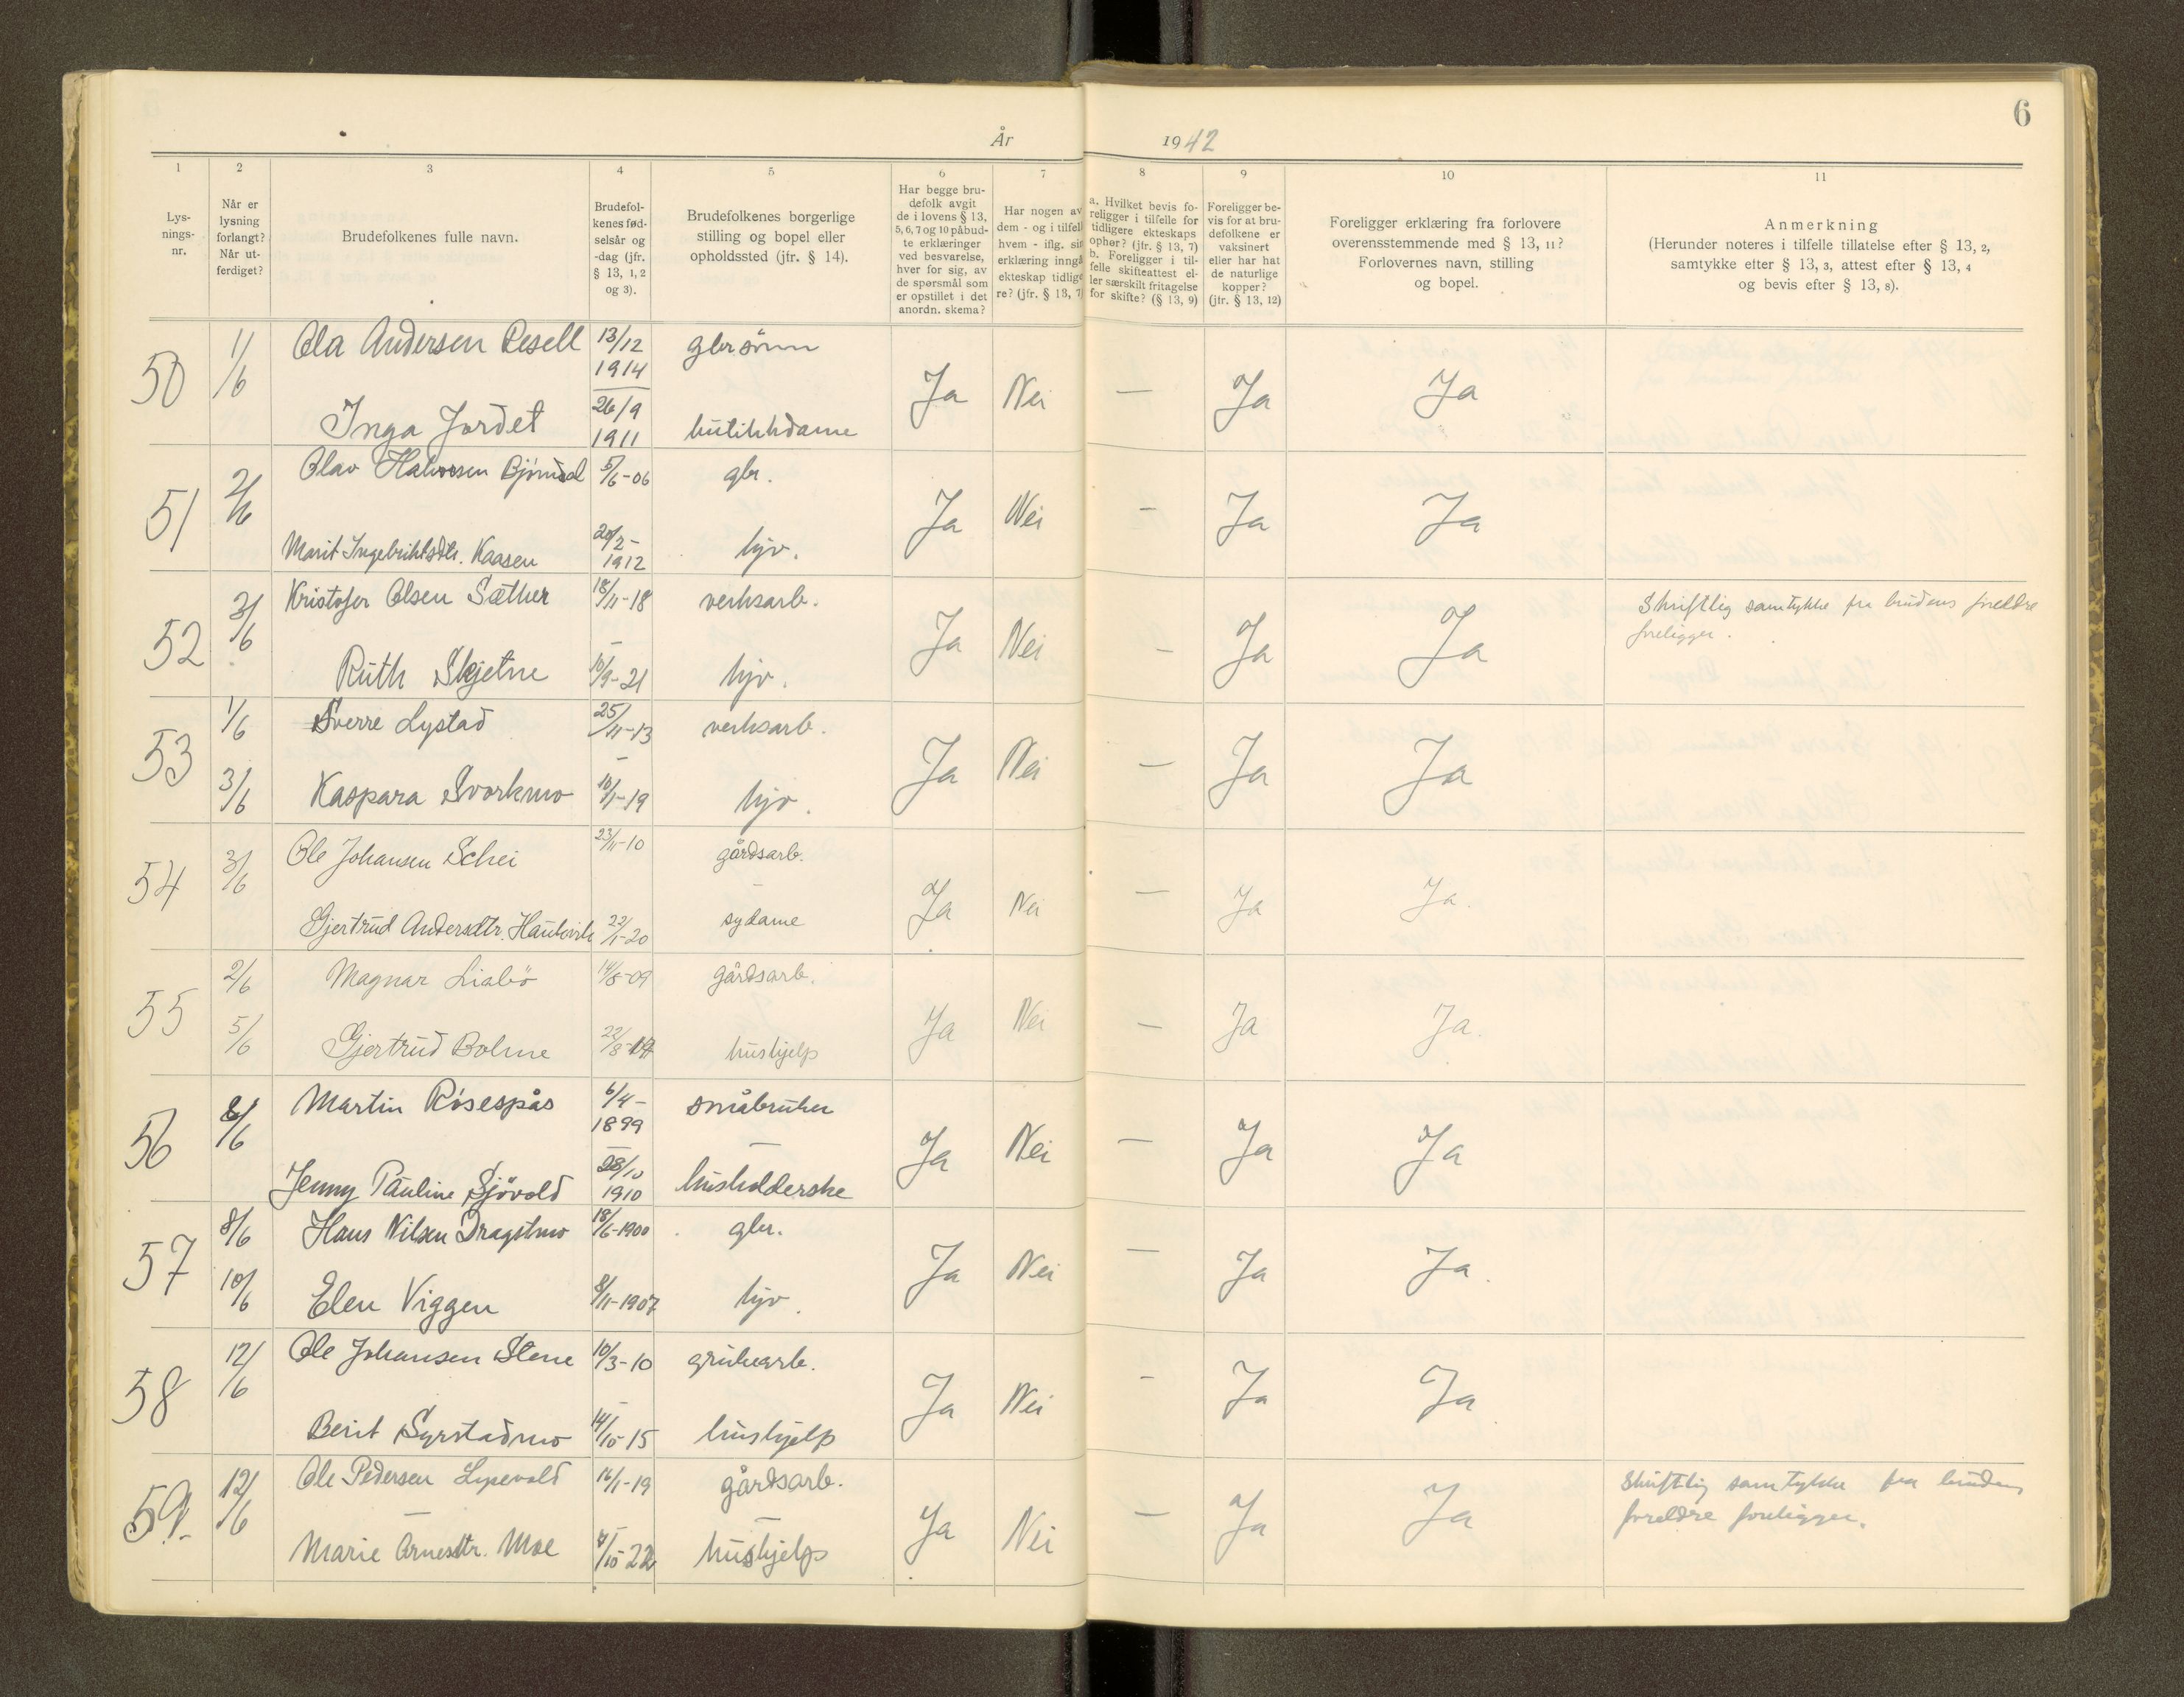 6
År 1942
1 2 3 4 5 6 7 8 9 10 11
Lys-
nings-
nr.
Når er
lysning
forlangt?
Når ut-
ferdiget?
Brudefolkenes fulle navn.
Brudefol-
kenes fød-
selsår og
-dag (jfr.
§ 13, 1, 2
og 3).
Brudefolkenes borgerlige
stilling og bopel eller
opholdssted (jfr. § 14).
Har begge bru-
defolk avgit
de i lovens § 13,
5, 6, 7 og 10 påbud-
te erklæringer
ved besvarelse,
hver for sig, av
de spørsmål som
er opstillet i det
anordn. skema?
Har nogen av
dem - og i tilfell
hvem - iflg. sin
erklæring inngå
ekteskap tidlige
re? (jfr. § 13, 7)
a. Hvilket bevis fo-
religger i tilfelle for
tidligere ekteskaps
ophør? (jfr. § 13, 7)
b. Foreligger i til-
felle skifteattest el-
ler særskilt fritagelse
for skifte? (§ 13, 9)
Foreligger be-
vis for at bru-
defolkene er
vaksinert
eller har hat
de naturlige
kopper?
(jfr. § 13, 12)
Foreligger erklæring fra forlovere
overensstemmende med § 13, 11?
Forlovernes navn, stilling
og bopel.
Anmerkning
(Herunder noteres i tilfelle tillatelse efter § 13, 2,
samtykke efter § 13, 3, attest efter § 13, 4
og bevis efter § 13, 8).
50 1/6 Ola Andersen Resell 13/12 1914 gbrsønn
Inga Jordet 26/9 1911 butikkdame Ja Nei — Ja Ja
51 2/6 Olav Halvorsen Bjørndal 5/6-06 gbr.
Marit Ingebriktsdtr. Kaasen 20/2-1912 hjv. Ja Nei — Ja Ja
52 3/6 Kristofer Olsen Sæther 18/11-18 verksarb.
Ruth Skjetne 10/9-21 hjv. Ja Nei — Ja Ja
Skriftlig samtykke fra brudens foreldre
foreligger.
53 1/6 Sverre Lystad 25/11-13 verksarb.
3/6 Kaspara Svorkmo 10/1-19 hjv. Ja Nei — Ja Ja
54 3/6 Ole Johansen Schei 23/11-10 gårdsarb.
Gjertrud Andersdtr. 22/1-20 sydame Ja Nei — Ja Ja.
55 2/6 Magnar Liabø 14/8-09 gårdsarb.
5/6 Gjertrud Bolme 22/8 hushjelp Ja Nei — Ja Ja.
56 8/6 Martin Risespås 6/4-1899 småbruker
Jenny Pauline Sjövold 28/10 1910 husholderske Ja Nei — Ja Ja
57 8/6 Hans Nilsen Dragstmo 18/6-1900 gbr.
10/6 Elen Viggen 8/11-1907 hjv. Ja Nei — Ja Ja.
58 12/6 Ole Johansen Stene 10/3-10 grubearb.
Berit Syrstadmo 14/10-15 hushjelp Ja Nei - Ja Ja
59. 12/6 Ole Pedersen 16/1-19 gårdsarb.
Marie Arnesdtr. Moe 4/10-22 hushjelp Ja Nei — Ja Ja
Skriftlig samtykke fra brudens
foreldre foreligger.